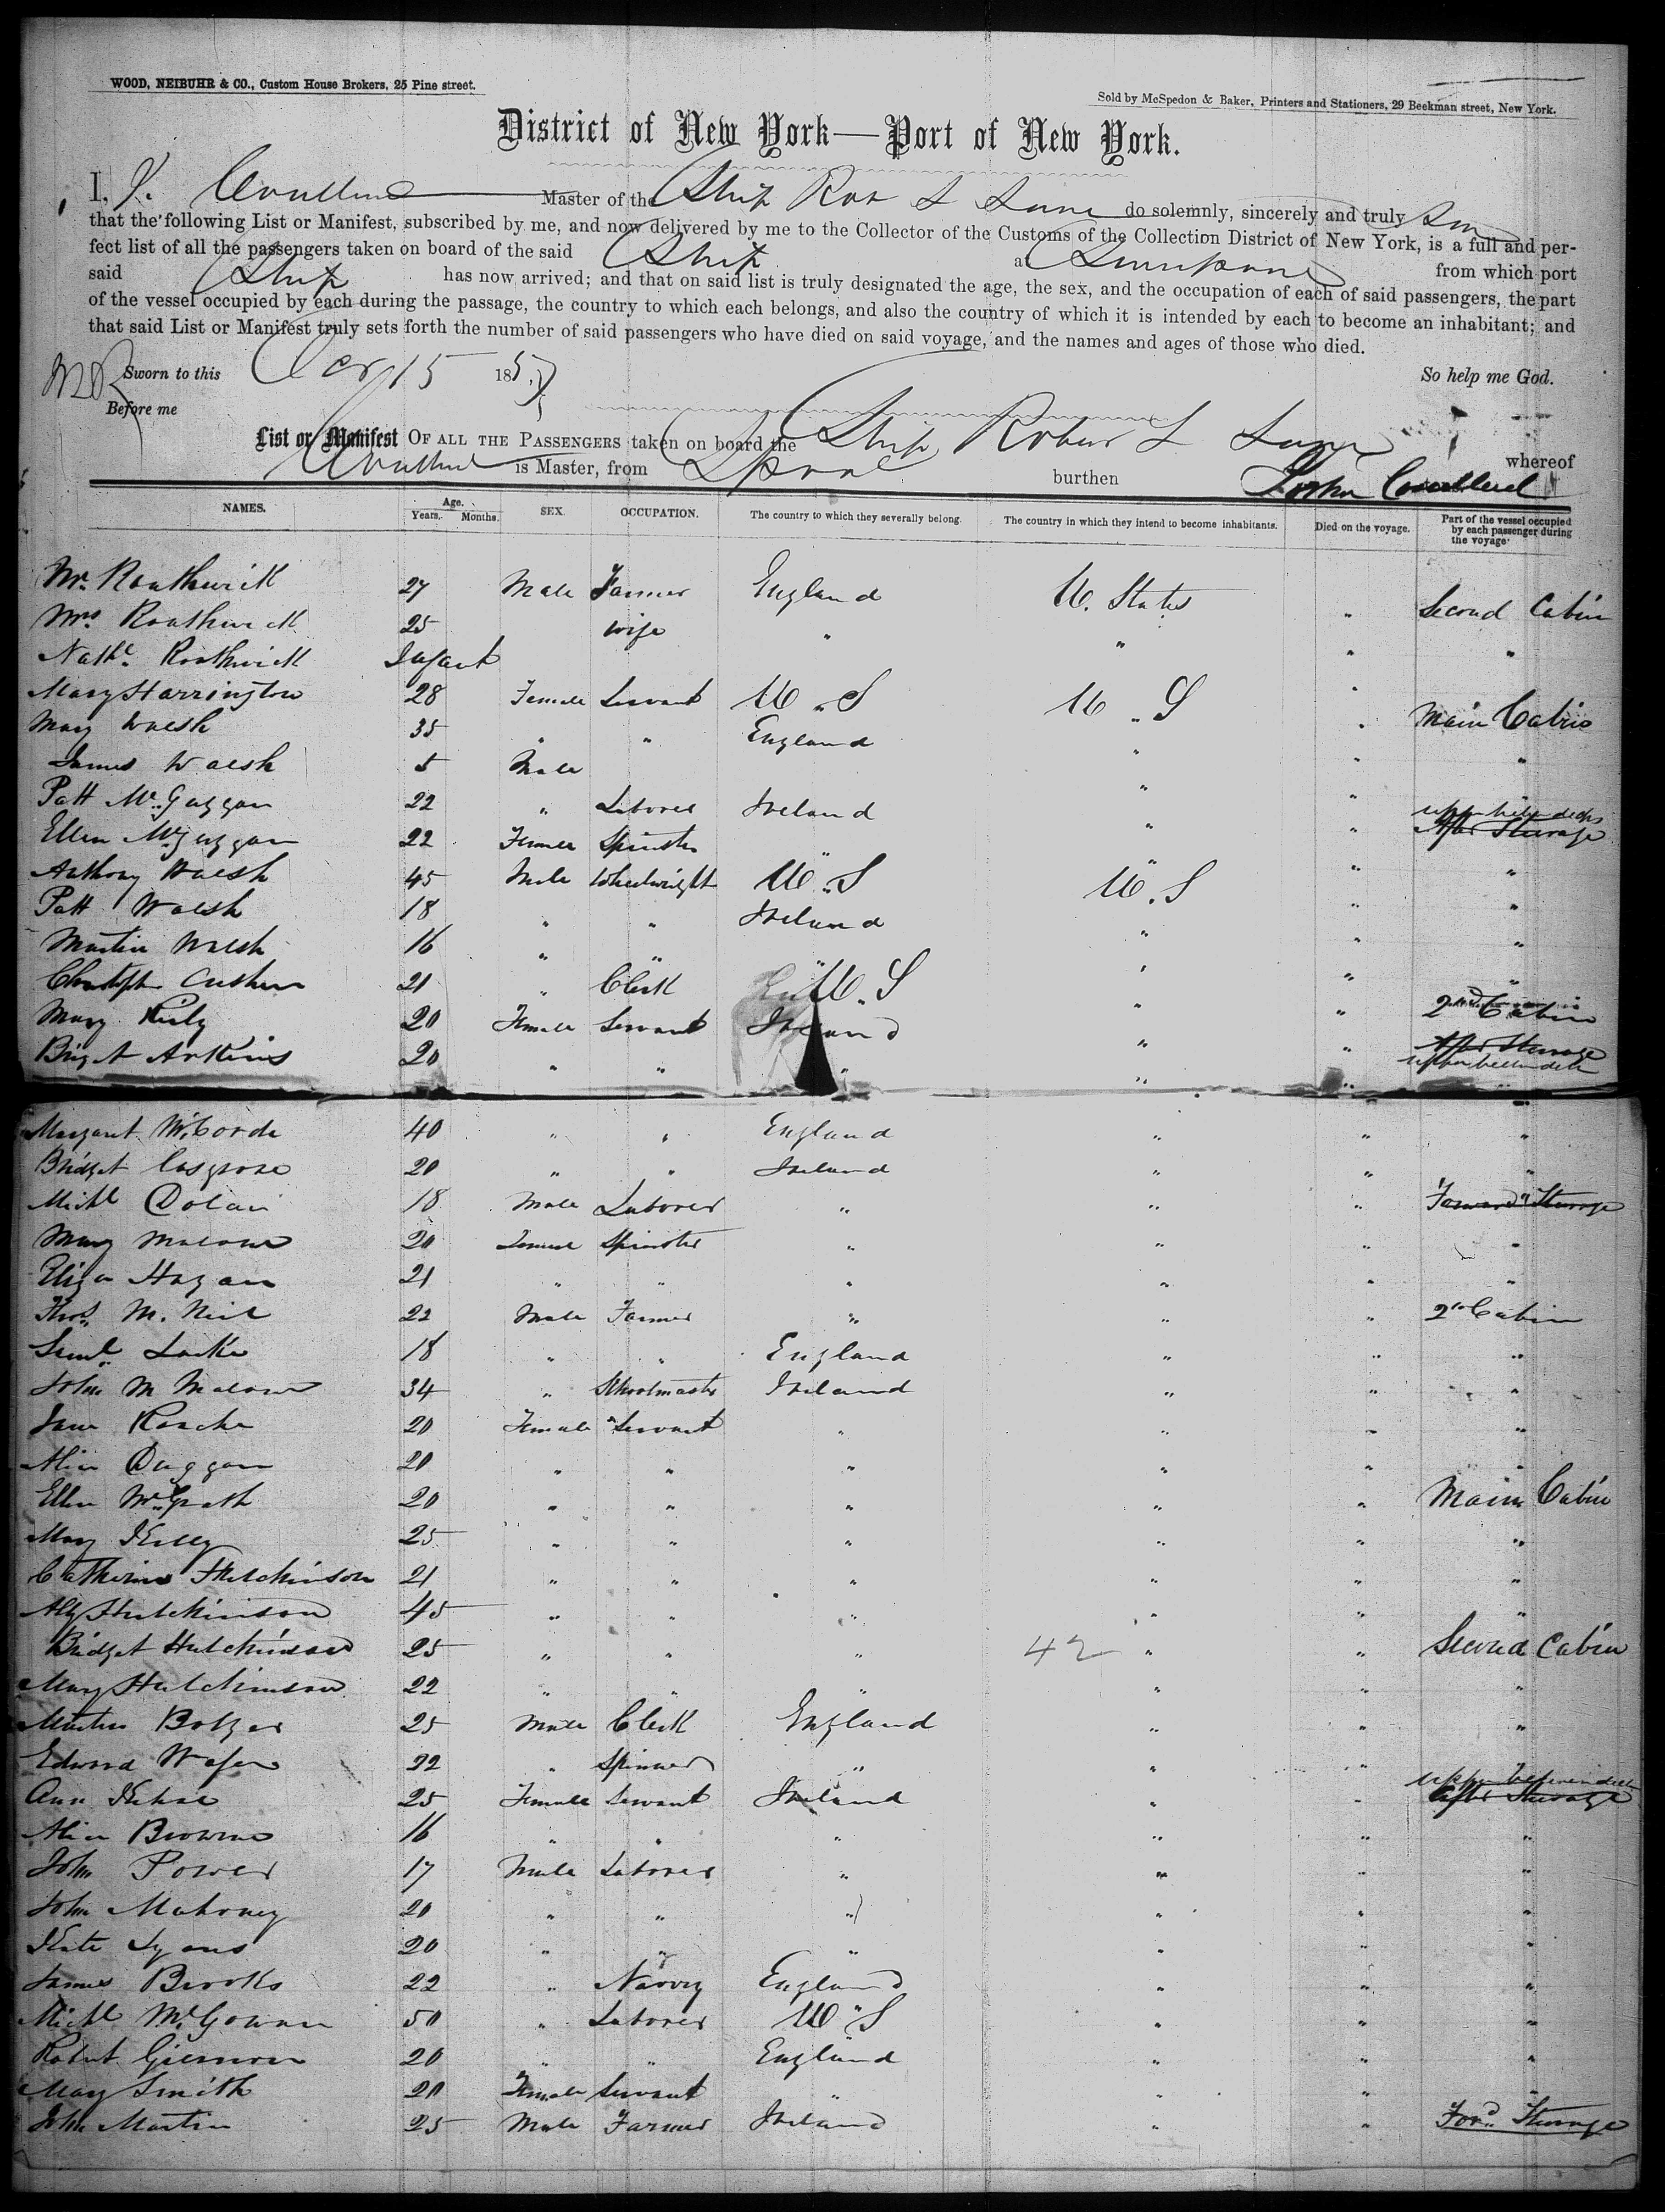 WOOD, NEIBUHR & CO., Custom House Brokers, 25 Pine street.
Sold by McSpedon & Baker, Printers and Stationers, 29 Beekman street, New York.
District of New York—Port of New York.
I, Master of the Ship Rob L Lane do solemnly, sincerely and truly
that the following List or Manifest, subscribed by me, and now delivered by me to the Collector of the Customs of the Collection District of New York, is a full and per-
fect list of all the passengers taken on board of the said Ship at Liverpool from which port
said Ship has now arrived; and that on said list is truly designated the age, the sex, and the occupation of each of said passengers, the part
of the vessel occupied by each during the passage, the country to which each belongs, and also the country of which it is intended by each to become an inhabitant; and
that said List or Manifest truly sets forth the number of said passengers who have died on said voyage, and the names and ages of those who died.
Sworn to this Oct 15 185 So help me God.
Before me
List or Manifest OF ALL THE PASSENGERS taken on board the Ship Robert L Lane whereof
is Master, from Lpool burthen
NAMES. Age. Years. Months. SEX. OCCUPATION. The country to which they severally belong. The country in which they intend to become inhabitants. Died on the voyage. Part of the vessel occupied by each passenger during the voyage.
Mr. Routhwick 27 Male Farmer England U. States " Second Cabin
Mrs. Routhwick 25 wife " " " "
Nathl. Routhwick Infant
Mary Harrington 28 Female Servant U. S U. S " Main Cabin
Mary Walsh 35 " " England " " "
James Walsh 5 Male " "
Patt McGuggan 22 " Laborer Ireland " " upper between decks After Steerage
Ellen McGuggan 22 Female Spinster " " " "
Anthony Walsh 45 Male Wheelwright U. S U. S " "
Patt Walsh 18 " " Ireland " " "
Martin Walsh 16 " " " " " "
Christoph Cushen 21 " Clerk U. S " " 2nd Cabin
Mary Kiely 20 Female Servant Ireland " " After Steerage upper between deck
Briget Arkins 20 " " " " " "
Margaret McCorde 40 " " England " " "
Bridget Cosgrove 20 " " Ireland " " "
Michl Dolan 18 Male Laborer " " " Forward Steerage
Mary Malone 20 Female Spinster " " " "
Eliza Hagan 21 " " " " " "
Thos. M. Neil 22 Male Farmer " " " 2nd Cabin
Saml Locke 18 " " England " " "
John M Malone 34 " Schoolmaster Ireland " " "
Jane Roache 20 Female Servant " " " "
Alice Duggan 20 " " " " " "
Ellen McGrath 20 " " " " " Main Cabin
Mary Kelly 25 " " " " " "
Catherine Hutchinson 21 " " " " " "
Hutchinson 45 " " " " " "
Bridget Hutchinson 25 " " " 42 " " Second Cabin
Mary Hutchinson 22 " " " " " "
Martin Bolger 25 Male Clerk England " " "
Edward Wafer 22 " Spinner " " " upper between deck
Ann Kehoe 25 Female Servant Ireland " " After Steerage
Alice Browne 16 " " " " " "
John Power 17 Male Laborer " " " "
John Mahoney 20 " " " " " "
Kate Lyons 20 " " " " " "
James Brooks 22 " Navvy England " " "
Michl McGowan 50 " Laborer U. S " " "
Robert 20 " " England " " "
Mary Smith 20 Female Servant " " " "
John Martin 25 Male Farmer Ireland " " Ford. Steerage